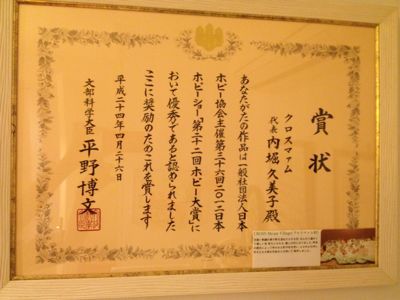 賞状
クロスマァム
代表 内堀 久美子殿
あなたがたの作品は一般社団法人日本
ホビー協会主催第三十六回2012日本
ホビーショー「第二十二回ホビー大賞」に
おいて優秀であると認められました
ここに奨励のためこれを賞します
平成二十四年四月二十六日
文部科学大臣 平野博文